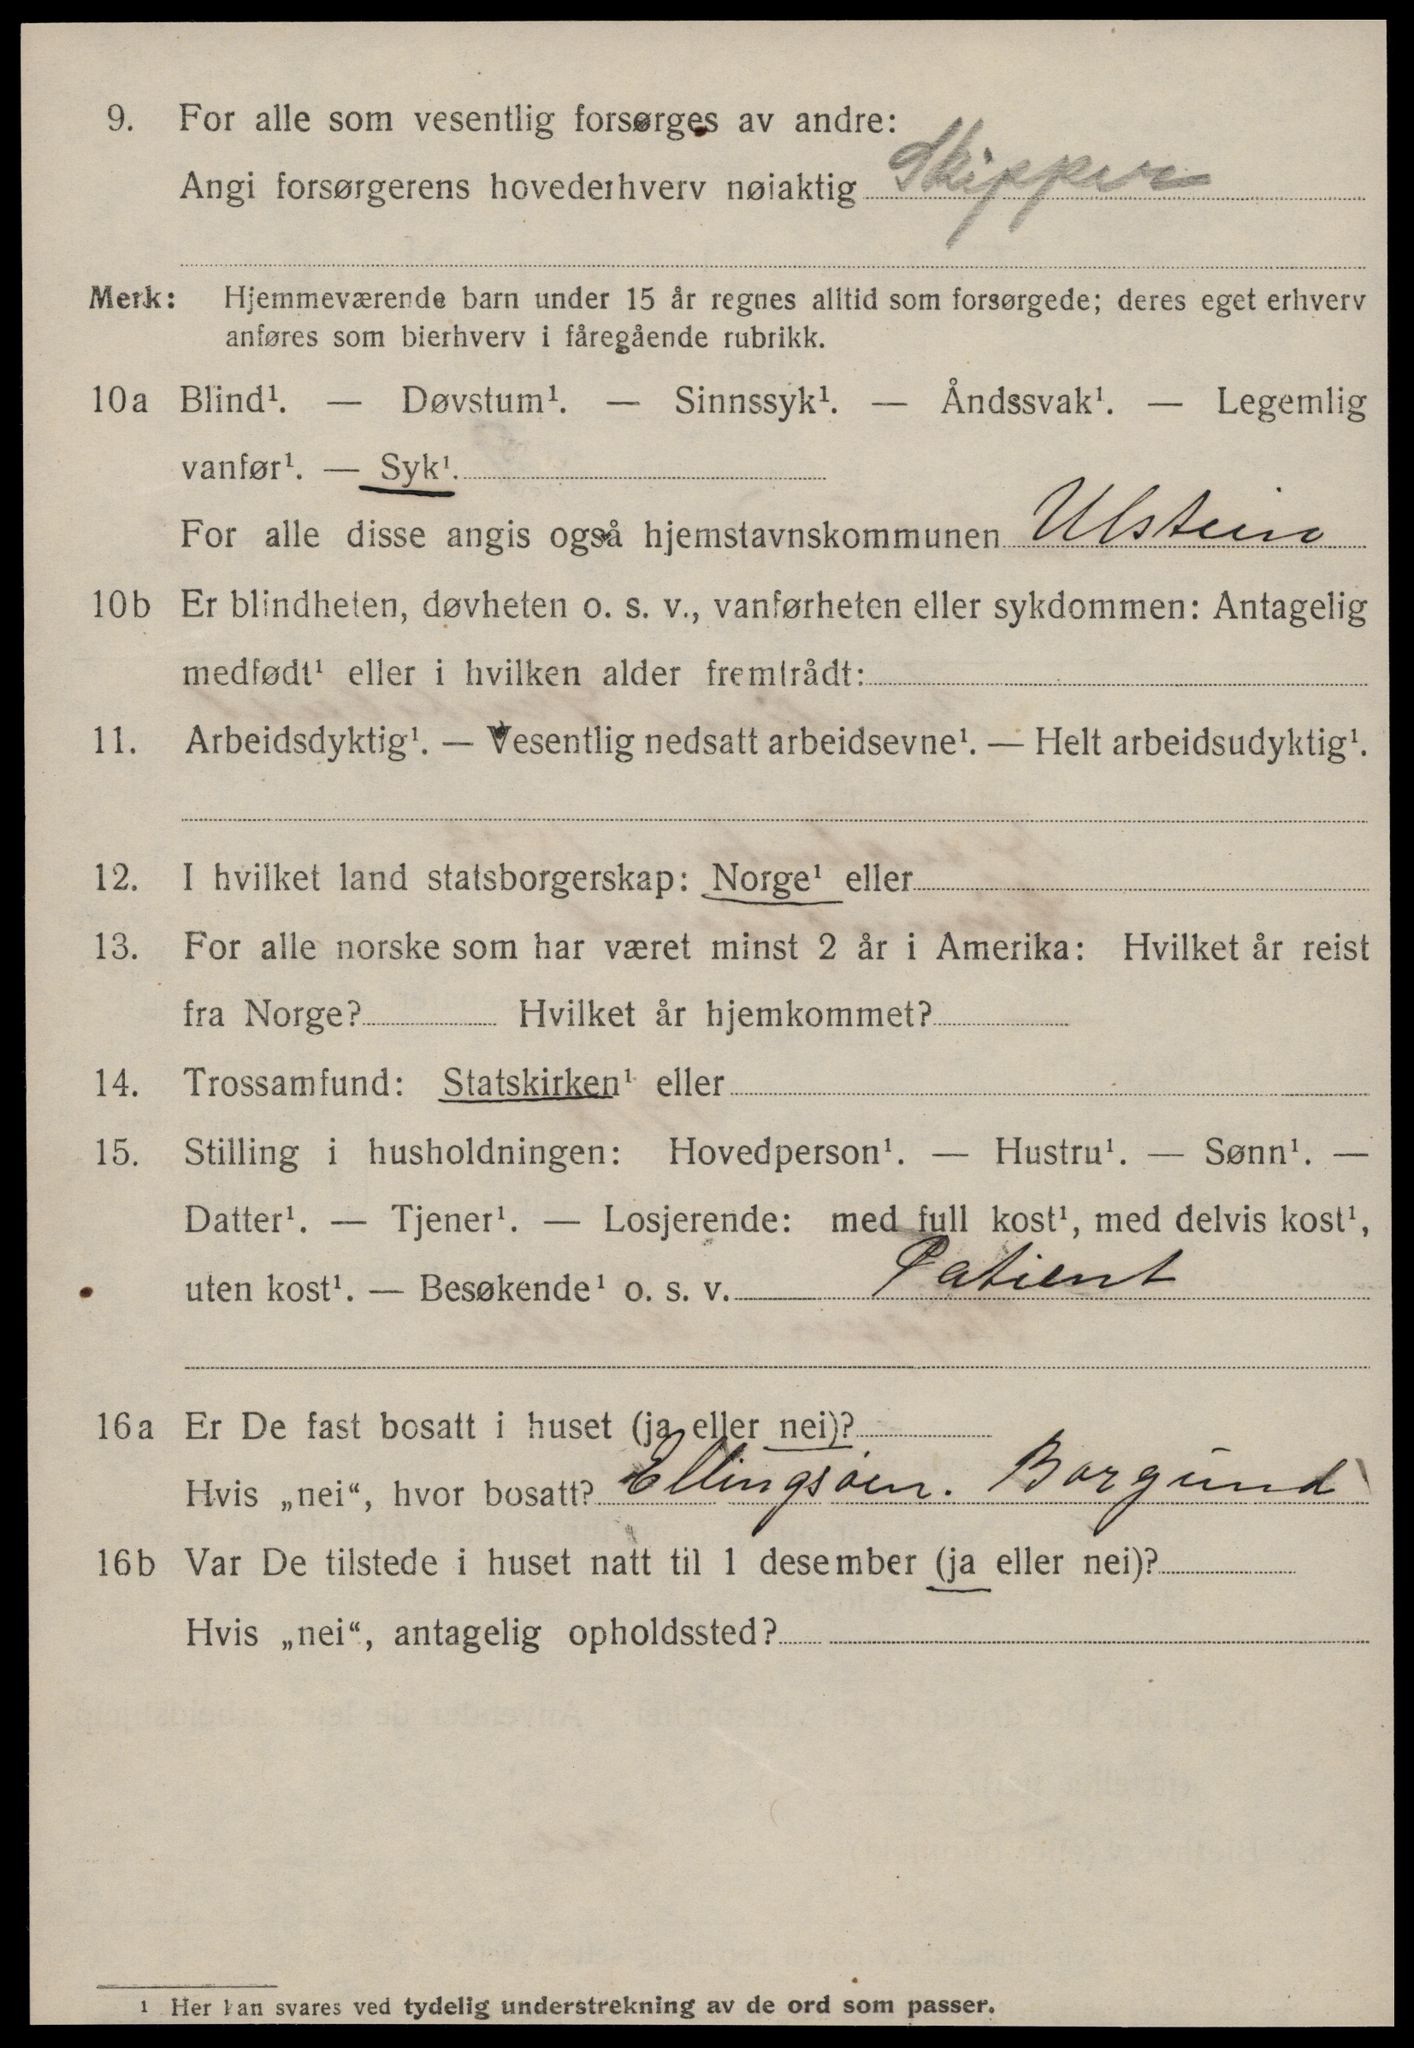 9. For alle som vesentlig forsørges av andre:
Angi forsørgerens hovederhverv nøiaktig Skipper
Merk: Hjemmeværende barn under 15 år regnes alltid som forsørgede; deres eget erhverv
anføres som bierhverv i fåregående rubrikk.
10a Blind¹. — Døvstum¹. — Sinnssyk¹. — Åndssvak¹. — Legemlig
vanfør¹. — Syk¹.
For alle disse angis også hjemstavnskommunen Ulstein
10b Er blindheten, døvheten o. s. v., vanførheten eller sykdommen: Antagelig
medfødt¹ eller i hvilken alder fremtrådt:
11. Arbeidsdyktig¹. — Vesentlig nedsatt arbeidsevne¹. — Helt arbeidsudyktig¹.
12. I hvilket land statsborgerskap: Norge¹ eller
13. For alle norske som har været minst 2 år i Amerika: Hvilket år reist
fra Norge? Hvilket år hjemkommet?
14. Trossamfund: Statskirken¹ eller
15. Stilling i husholdningen: Hovedperson¹. — Hustru¹. — Sønn¹. —
Datter¹. — Tjener¹. — Losjerende: med full kost¹, med delvis kost¹,
uten kost¹. — Besøkende¹ o. s. v. Patient
16a Er De fast bosatt i huset (ja eller nei)?
Hvis „nei“, hvor bosatt? Ellingsøen. Borgund
16b Var De tilstede i huset natt til 1 desember (ja eller nei)?
Hvis „nei“, antagelig opholdssted?
¹ Her kan svares ved tydelig understrekning av de ord som passer.